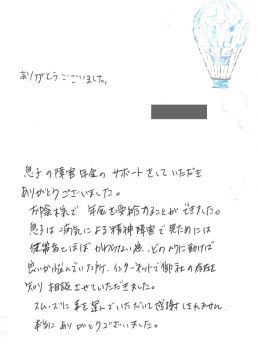 ありがとうございました。
息子の障害年金のサポートをしていただき
ありがとうございました。
お陰様で年金を受給することができました。
息子は病気による精神障害で見ためには
健常者とほぼかわらない為、どのように動けば
良いか悩んでいた所、インターネットで御社の存在を
知り相談させていただきました。
スムーズに事を運んでいただいて感謝しきれません。
本当にありがとうございました。